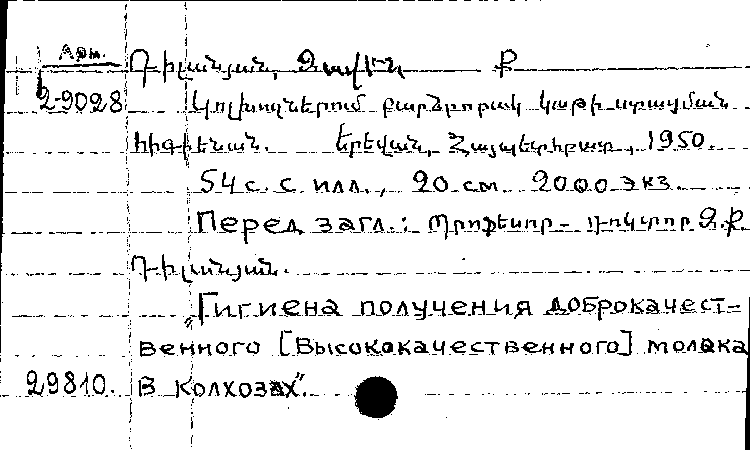 Арм. Դիլանյան, Զավեն Ք
2-9028 Կոլխոզներում բարձրորակ կաթի ստացման
հիգիենան. Երևան, Հայպետհրատ, 1950.
54 с. с илл., 20 см. 2000 экз.
Перед загл.: Պրոֆեսոր-դոկտոր Զ.Ք.
Դիլանյան.
"Гигиена получения доброкачест-
венного [Высококачественного] молока
29810. в колхозах".